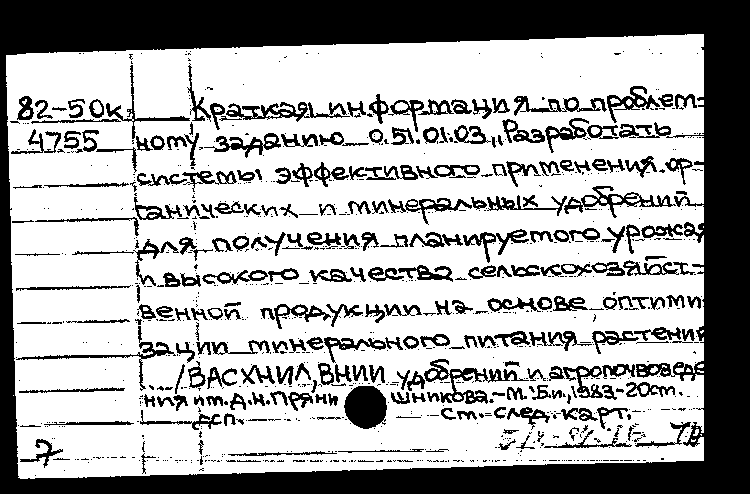 82-50к. Краткая информация по проблем-
4755 ному заданию 0.51.01.03 „Разработать
системы эффективного применения ор-
ганических и минеральных удобрений
для получения планируемого урожая
и высокого качества сельскохозяйст-
венной продукции на основе оптими
зации минерального питания растений
.../ВАСХНИЛ, ВНИИ удобрений и агропочвоведе
ния им. Д.Н. Пряни шникова.-М.:Б.и., 1983.-20см.
дсп. Ст. след. карт.
7